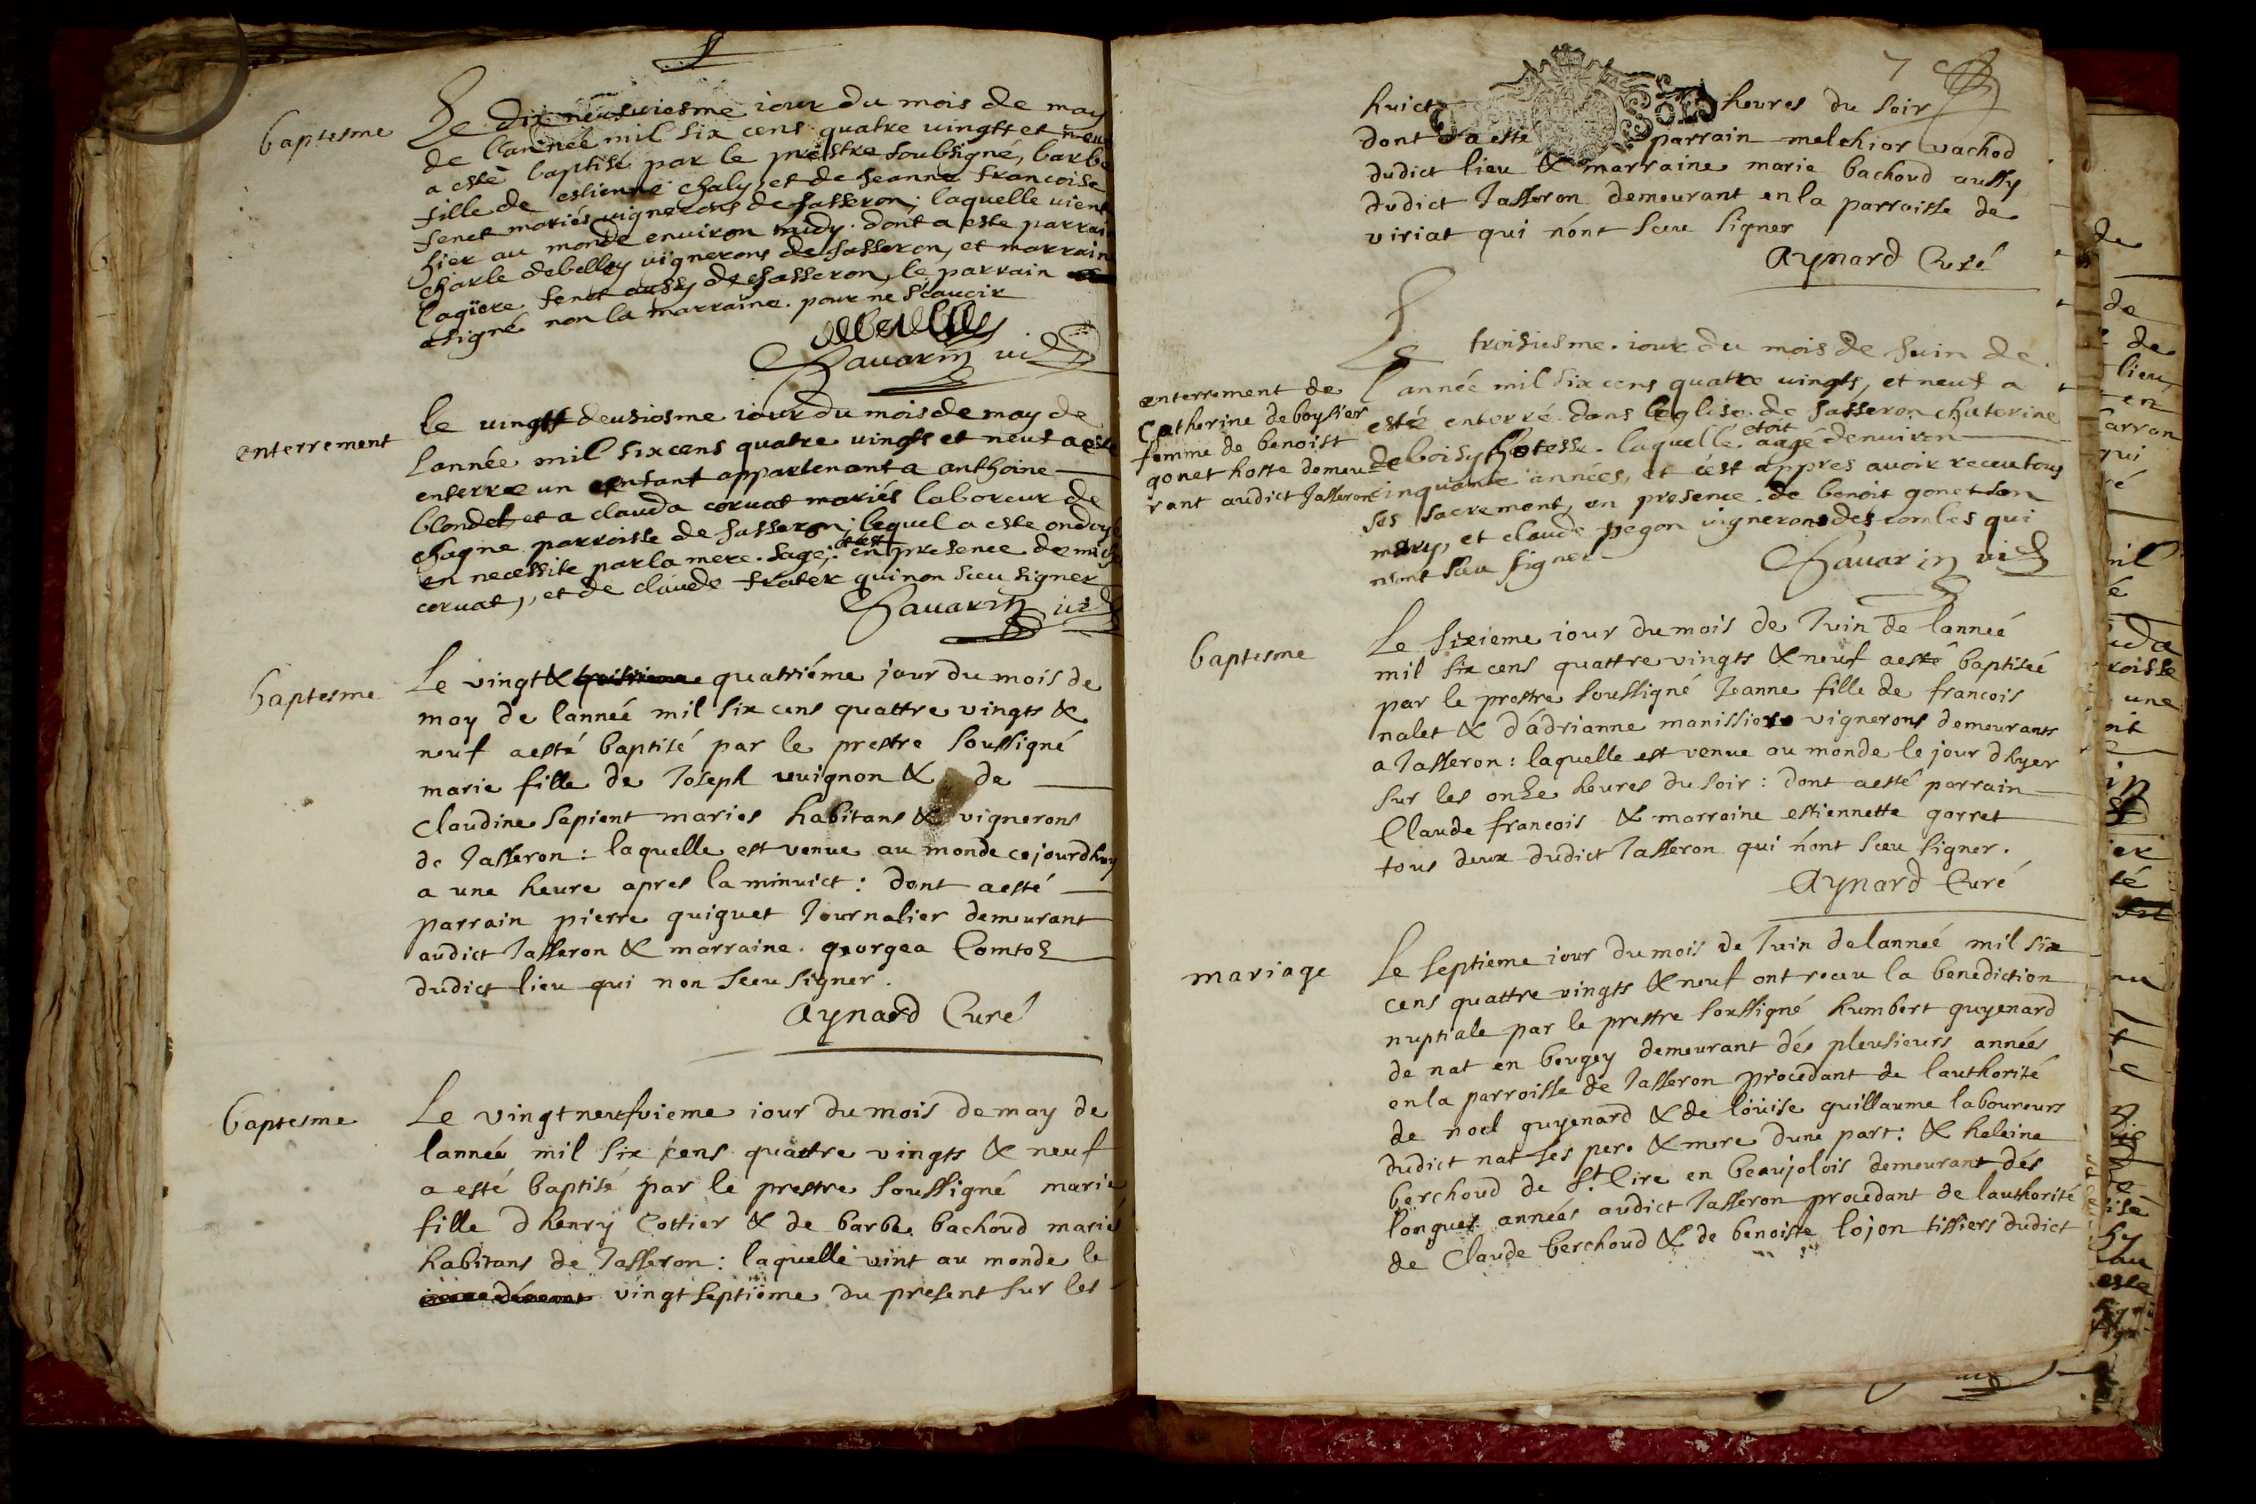 baptesme
Le dix neufviesme iour du mois de may
de l'année mil six cens quatre vingts et neuf
a esté baptisé par le prestre soubsigné, barbe
fille de estienne chaly et de Jeanne francoise
fenet mariés vignerons de Jasseron; laquelle vient
hier au monde environ midy. dont a este parrain
charle debelley vignerons de Jasseron, et marrain
lagiere fenet aussy de Jasseron, le parrain
a signé non la marraine. pour ne scavoir
debelley
Chavarin vic
enterrement
le vingtdeusiosme iour du mois de may de
lannée mil six cens quatre vingts et neuf a esté
enterre un enfant appartenant a anthoine
blondet et a clauda coruat mariés laboreur de
chagne parroisse de Jasseron; lequel a este ondoyé
en necessite par la mere. sage; en presence de
coruat, et de claude frater qui non sceu signer
Chavarin vic
baptesme
Le vingt & quatriéme jour du mois de
may de lanneé mil six cens quattre vingts &
neuf a esté baptisé par le prestre soussigné
marie fille de Joseph vuignon & de
Claudine Sapient maries habitans & vignerons
de Jasseron: laquelle est venue au monde cejourdhuy
a une heure apres la minuict: dont a esté
parrain pierre guiguet Journalier demeurant
audict Jasseron & marraine. georgea Comtoz
dudict lieu qui non sceu signer.
Aynard Curé
baptesme
Le vingtneufvieme iour du mois de may de
lanneé mil six cens quattre vingts & neuf
a esté baptisé par le prestre soussigné marie
fille d henry Cottier & de barbe bachoud mariés
habitans de Jasseron: laquelle vint au monde le
vingtseptiéme du present sur les
7
huict heures du soir
dont a esté parrain melchior vachod
dudict lieu & marraine marie bachoud aussy
dudict Jasseron demeurant en la parroisse de
viriat qui n'ont sceu signer
Aynard Curé
enterrement de
Catherine deboysier
femme de benoist
gonet hoste demeu
rant audict Jasseron
Le troisiesme. iour du mois de Juin de
l'année mil six cens quattre vingts, et neuf a
esté enterré dans l'eglise de Jasseron chaterine
de boisy hotesse. laquelle étoit aagé denviron
cinquante années, et c'est appres avoir receu tous
ses sacrement, en presence de benoit gonet son
mary, et claude pegon vignerons des combles qui
n'ont sceu signer
Chavarin vic
baptesme
Le sixieme iour du mois de Juin de lanneé
mil six cens quattre vingts & neuf a esté baptiseé
par le prestre soussigné Jeanne fille de francois
nalet & d'adrianne manissiere vignerons demeurants
a Jasseron: laquelle est venue au monde le jour dhyer
sur les onze heures du soir: dont a esté parrain
Claude francois & marraine estiennette garret
tous deux dudict Jasseron qui n'ont sceu signer.
Aynard Curé
mariage
Le septieme iour du mois de Juin de lanneé mil six
cens quattre vingts & neuf ont receu la benediction
nuptiale par le prestre soussigné humbert guyenard
de nat en beugey demeurant dés pleusieurs anneés
en la parroisse de Jasseron procedant de lauthorité
de noel guyenard & de löuise guillaume laboureurs
dudict nat ses pere & mere dune part: & heleine
berchoud de St Cire en beaujolois demeurant dés
longues anneés audict Jasseron procedant de lauthorité
de Claude berchoud & de benoiste lojon tissiers dudict